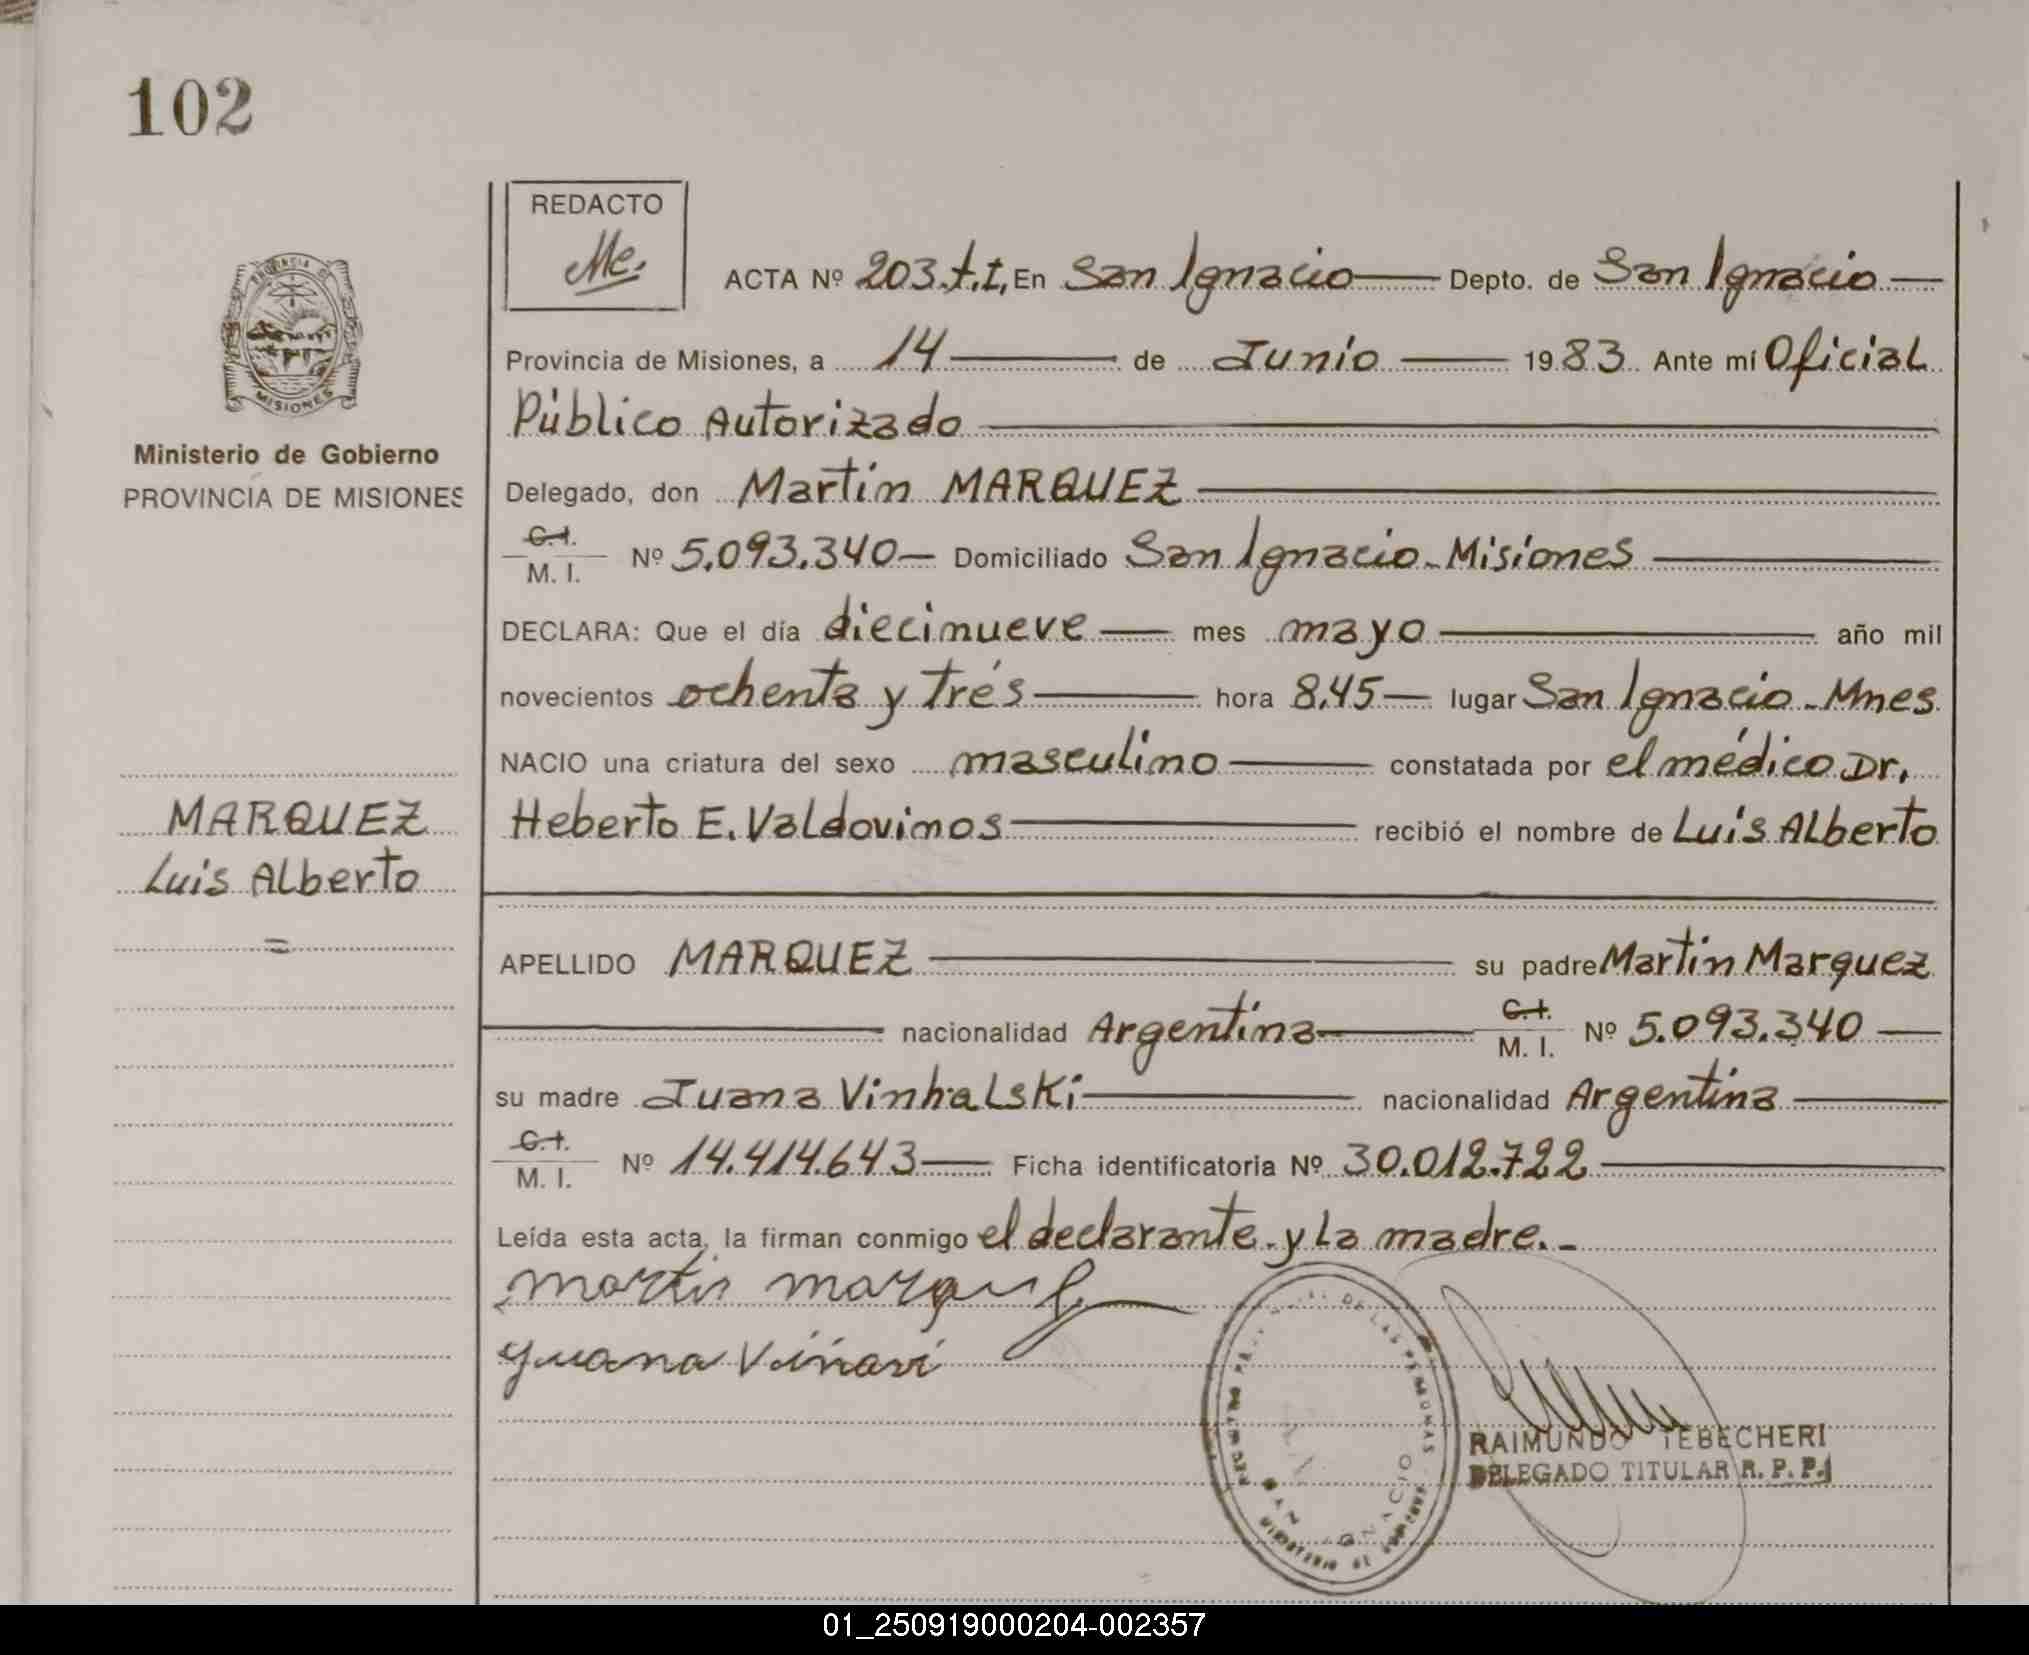 102
REDACTO
Me.
ACTA Nº 203.t.I, En San Ignacio Depto. de San Ignacio
Provincia de Misiones, a 14 de Junio 1983. Ante mí Oficial
Público Autorizado
Delegado, don Martin MARQUEZ
C.I.
M. I. Nº 5.093.340 Domiciliado San Ignacio - Misiones
DECLARA: Que el día diecinueve mes mayo año mil
novecientos ochenta y trés hora 8,45 lugar San Ignacio - Mnes.
NACIO una criatura del sexo masculino constatada por el médico Dr.
Heberto E. Valdovinos recibió el nombre de Luis Alberto
APELLIDO MARQUEZ su padre Martin Marquez
nacionalidad Argentina C.I.
M. I. Nº 5.093.340
su madre Juana Vinhalski nacionalidad Argentina
C.I.
M. I. Nº 14.414.643 Ficha identificatoria Nº 30.012.722
Leída esta acta, la firman conmigo el declarante - y la madre. -
martin marquez
Juana
RAIMUNDO TEBECHERI
DELEGADO TITULAR R. P. P.
DE LAS PERSONAS
SAN IGNACIO
MINISTERIO DE GOBIERNO
PROVINCIA DE
MISIONES
Ministerio de Gobierno
PROVINCIA DE MISIONES
MARQUEZ
Luis Alberto
=
01_250919000204-002357